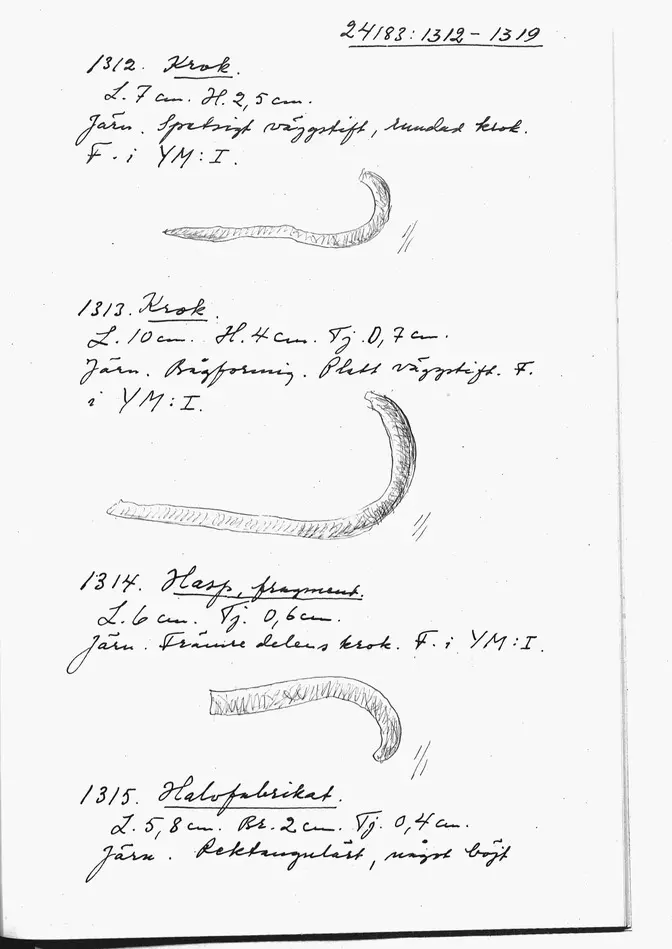 24183:1312-1319
1312. Krok.
L. 7 cm. H. 2,5 cm.
Järn. Spetsigt väggstift, rundad krok.
F. i YM:I.
1/1
1313. Krok.
L. 10 cm. H. 4 cm. Tj. 0,7 cm.
Järn. Bågformig. Platt väggstift. F.
i YM:I.
1/1
1314. Hasp, fragment.
L. 6 cm. Tj. 0,6 cm.
Järn. Främre delens krok. F. i YM:I.
1/1
1315. Halvfabrikat.
L. 5,8 cm. Br. 2 cm. Tj. 0,4 cm.
Järn. Rektangulärt, något böjt